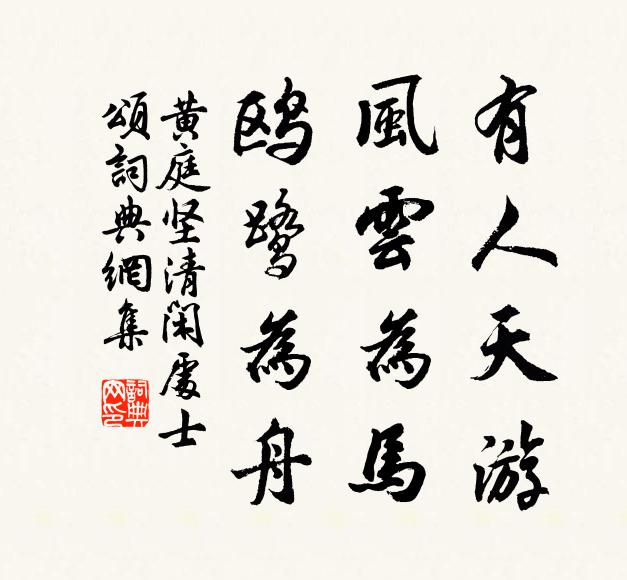 有人天游
風雲為馬
鸥鹭為舟
黄庭坚清閑處士
頌詞典網集
詞典网印